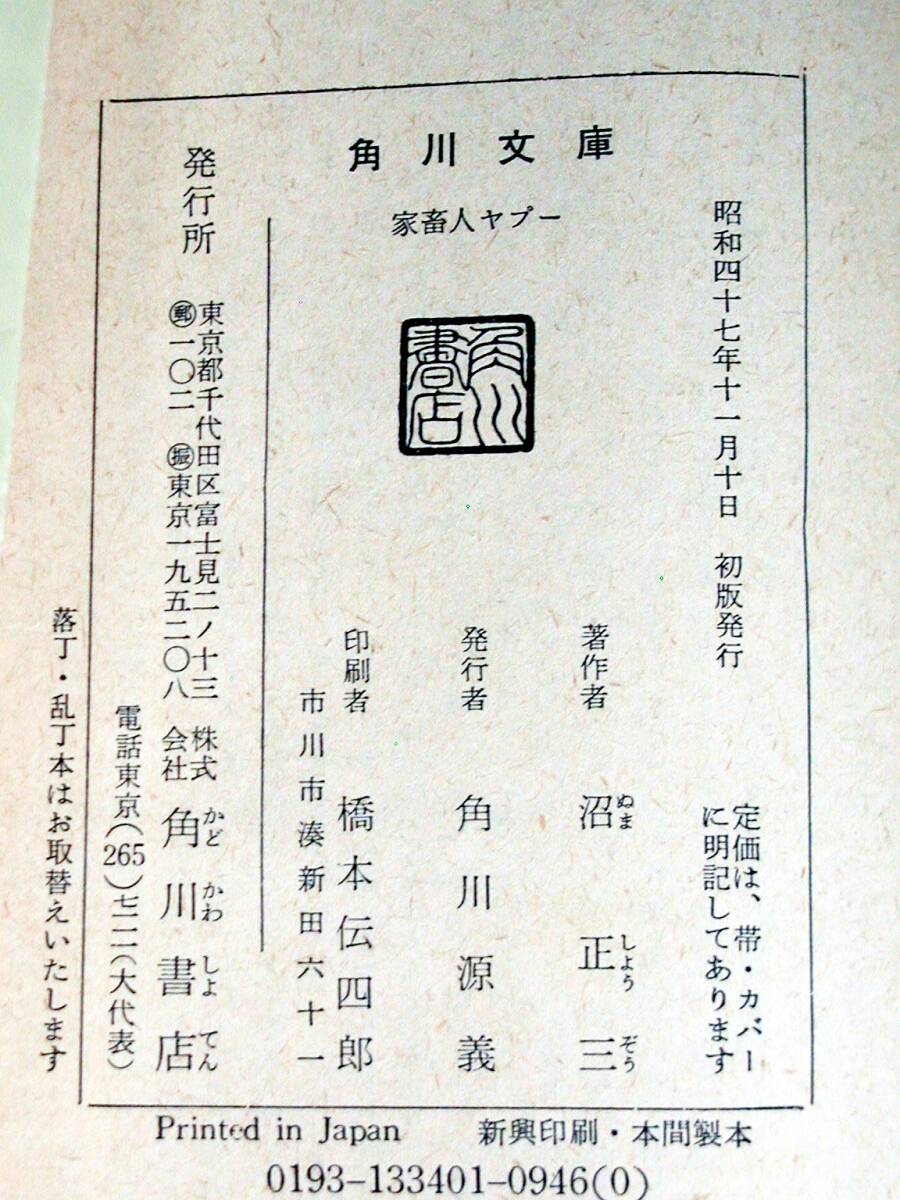 角川文庫
家畜人ヤプー
角川書店
昭和四十七年十一月十日 初版発行
定価は、帯・カバー
に明記してあります
著作者 沼正三
ぬましようぞう
発行者 角川源義
印刷者 橋本伝四郎
市川市湊新田六十一
発行所
東京都千代田区富士見二ノ十三
㊒一〇二 ㊞東京一九五二〇八
株式会社 角川書店
かどかわしよてん
電話東京(265)七一二一(大代表)
落丁・乱丁本はお取替えいたします
Printed in Japan 新興印刷・本間製本
0193-133401-0946(0)